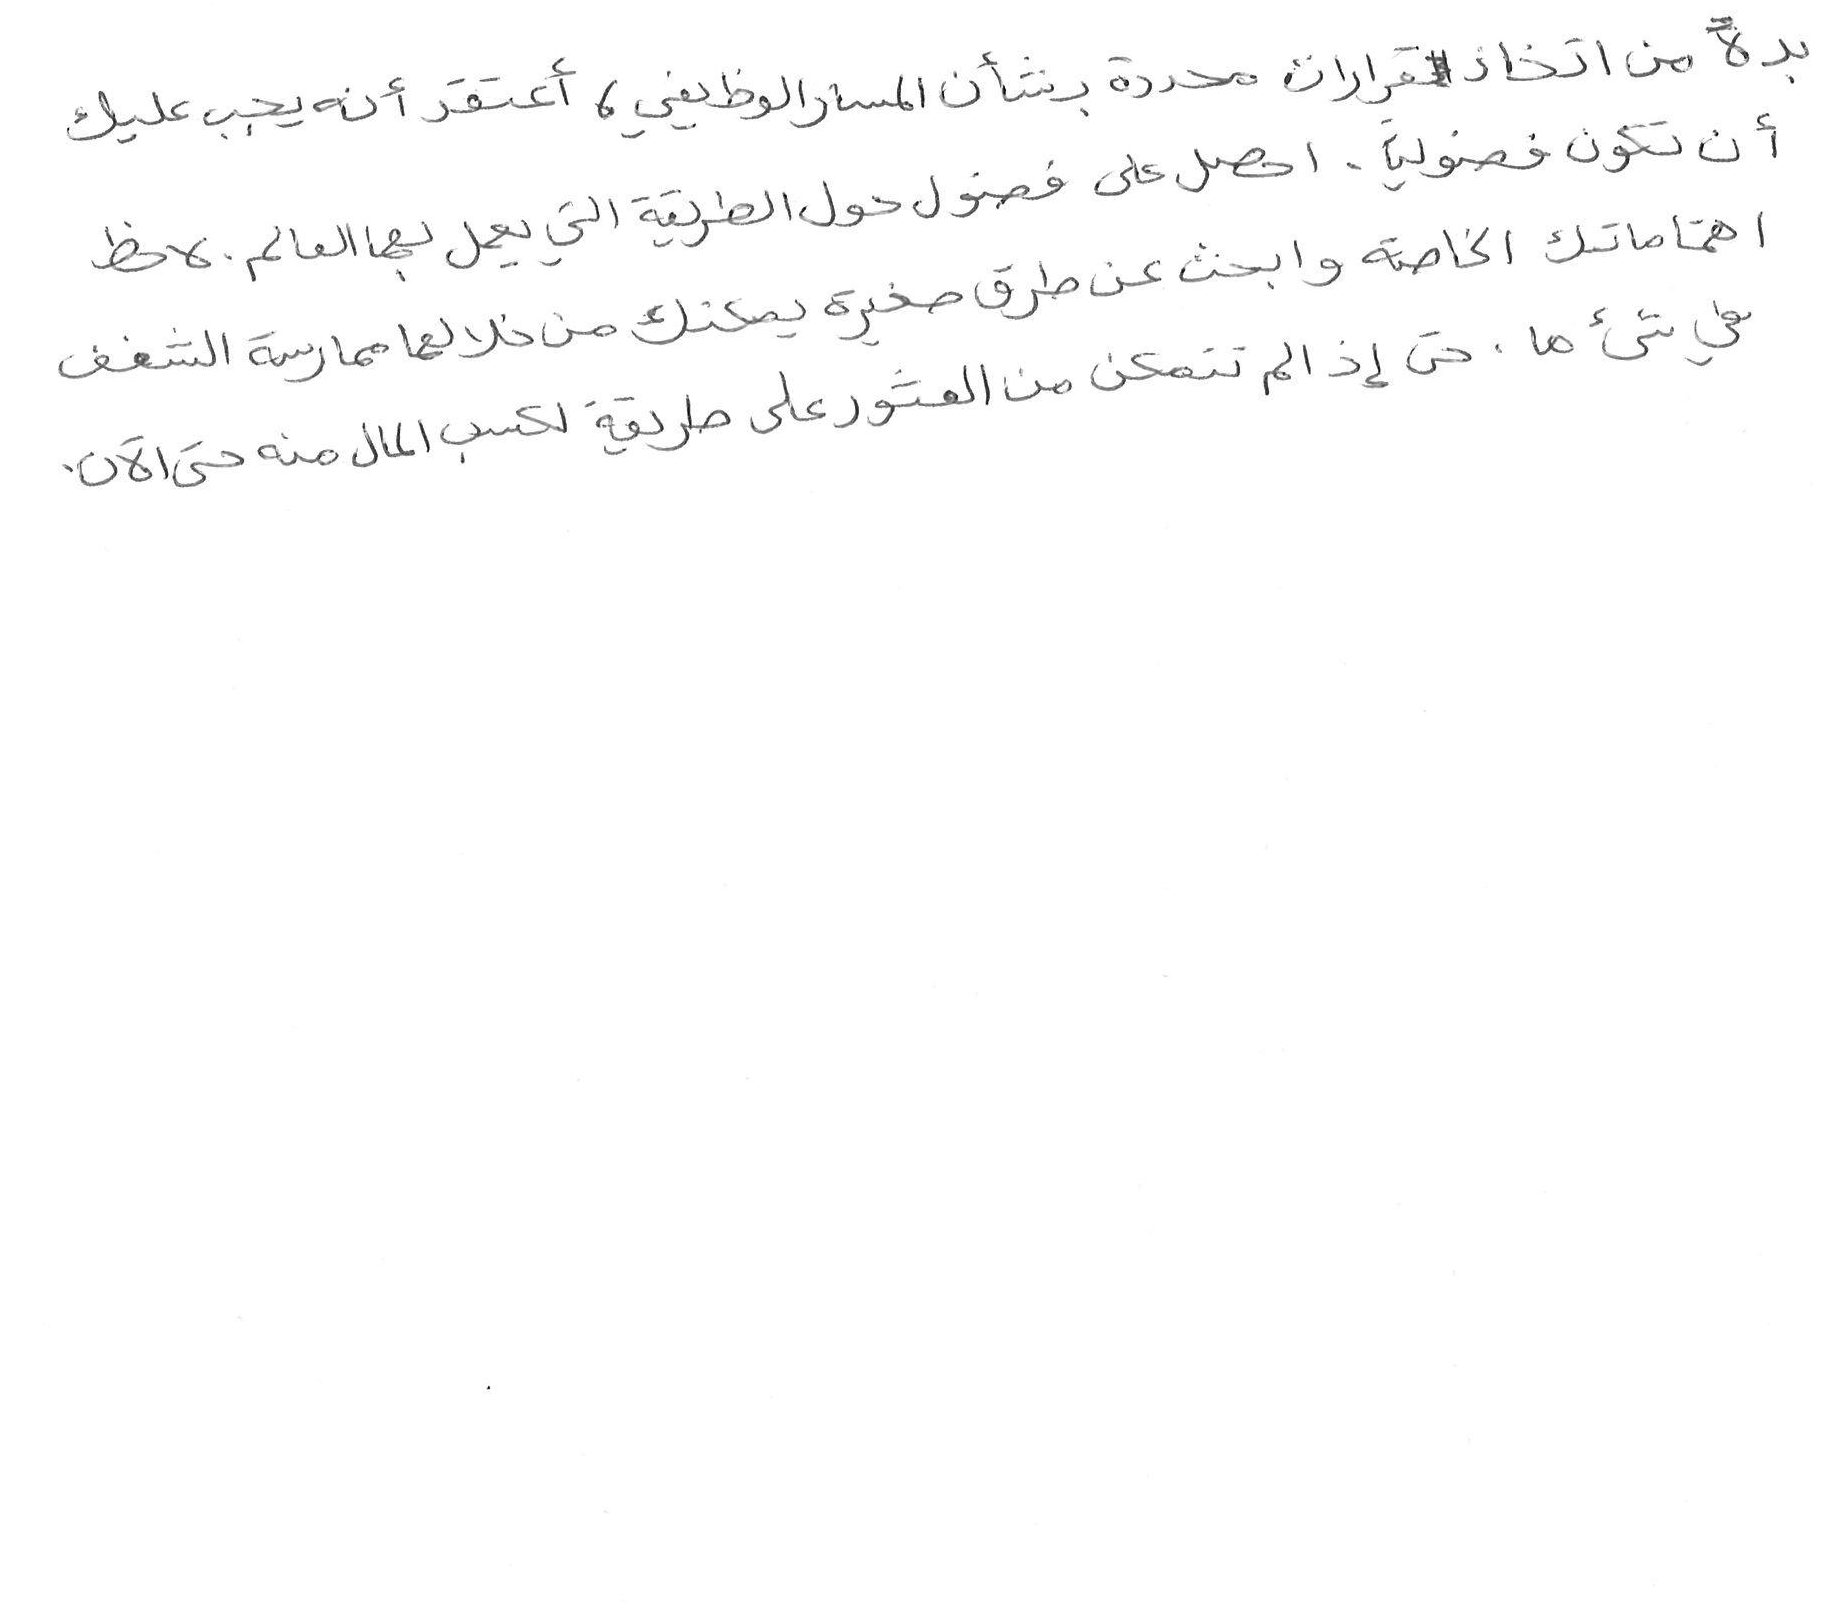 بدلاً من اتخاذ قرارات محددة بشأن المسار الوظيفي، أعتقد أنه يجب عليك
أن تكون فضولياً. احصل على فضول حول الطريقة التي يعمل بها العالم. لاحظ
اهتماماتك الخاصة وابحث عن طرق صغيرة يمكنك من خلالها ممارسة الشغف
في شئ ما. حتى إذا لم تتمكن من العثور على طريقة لكسب المال منه حتى الآن.